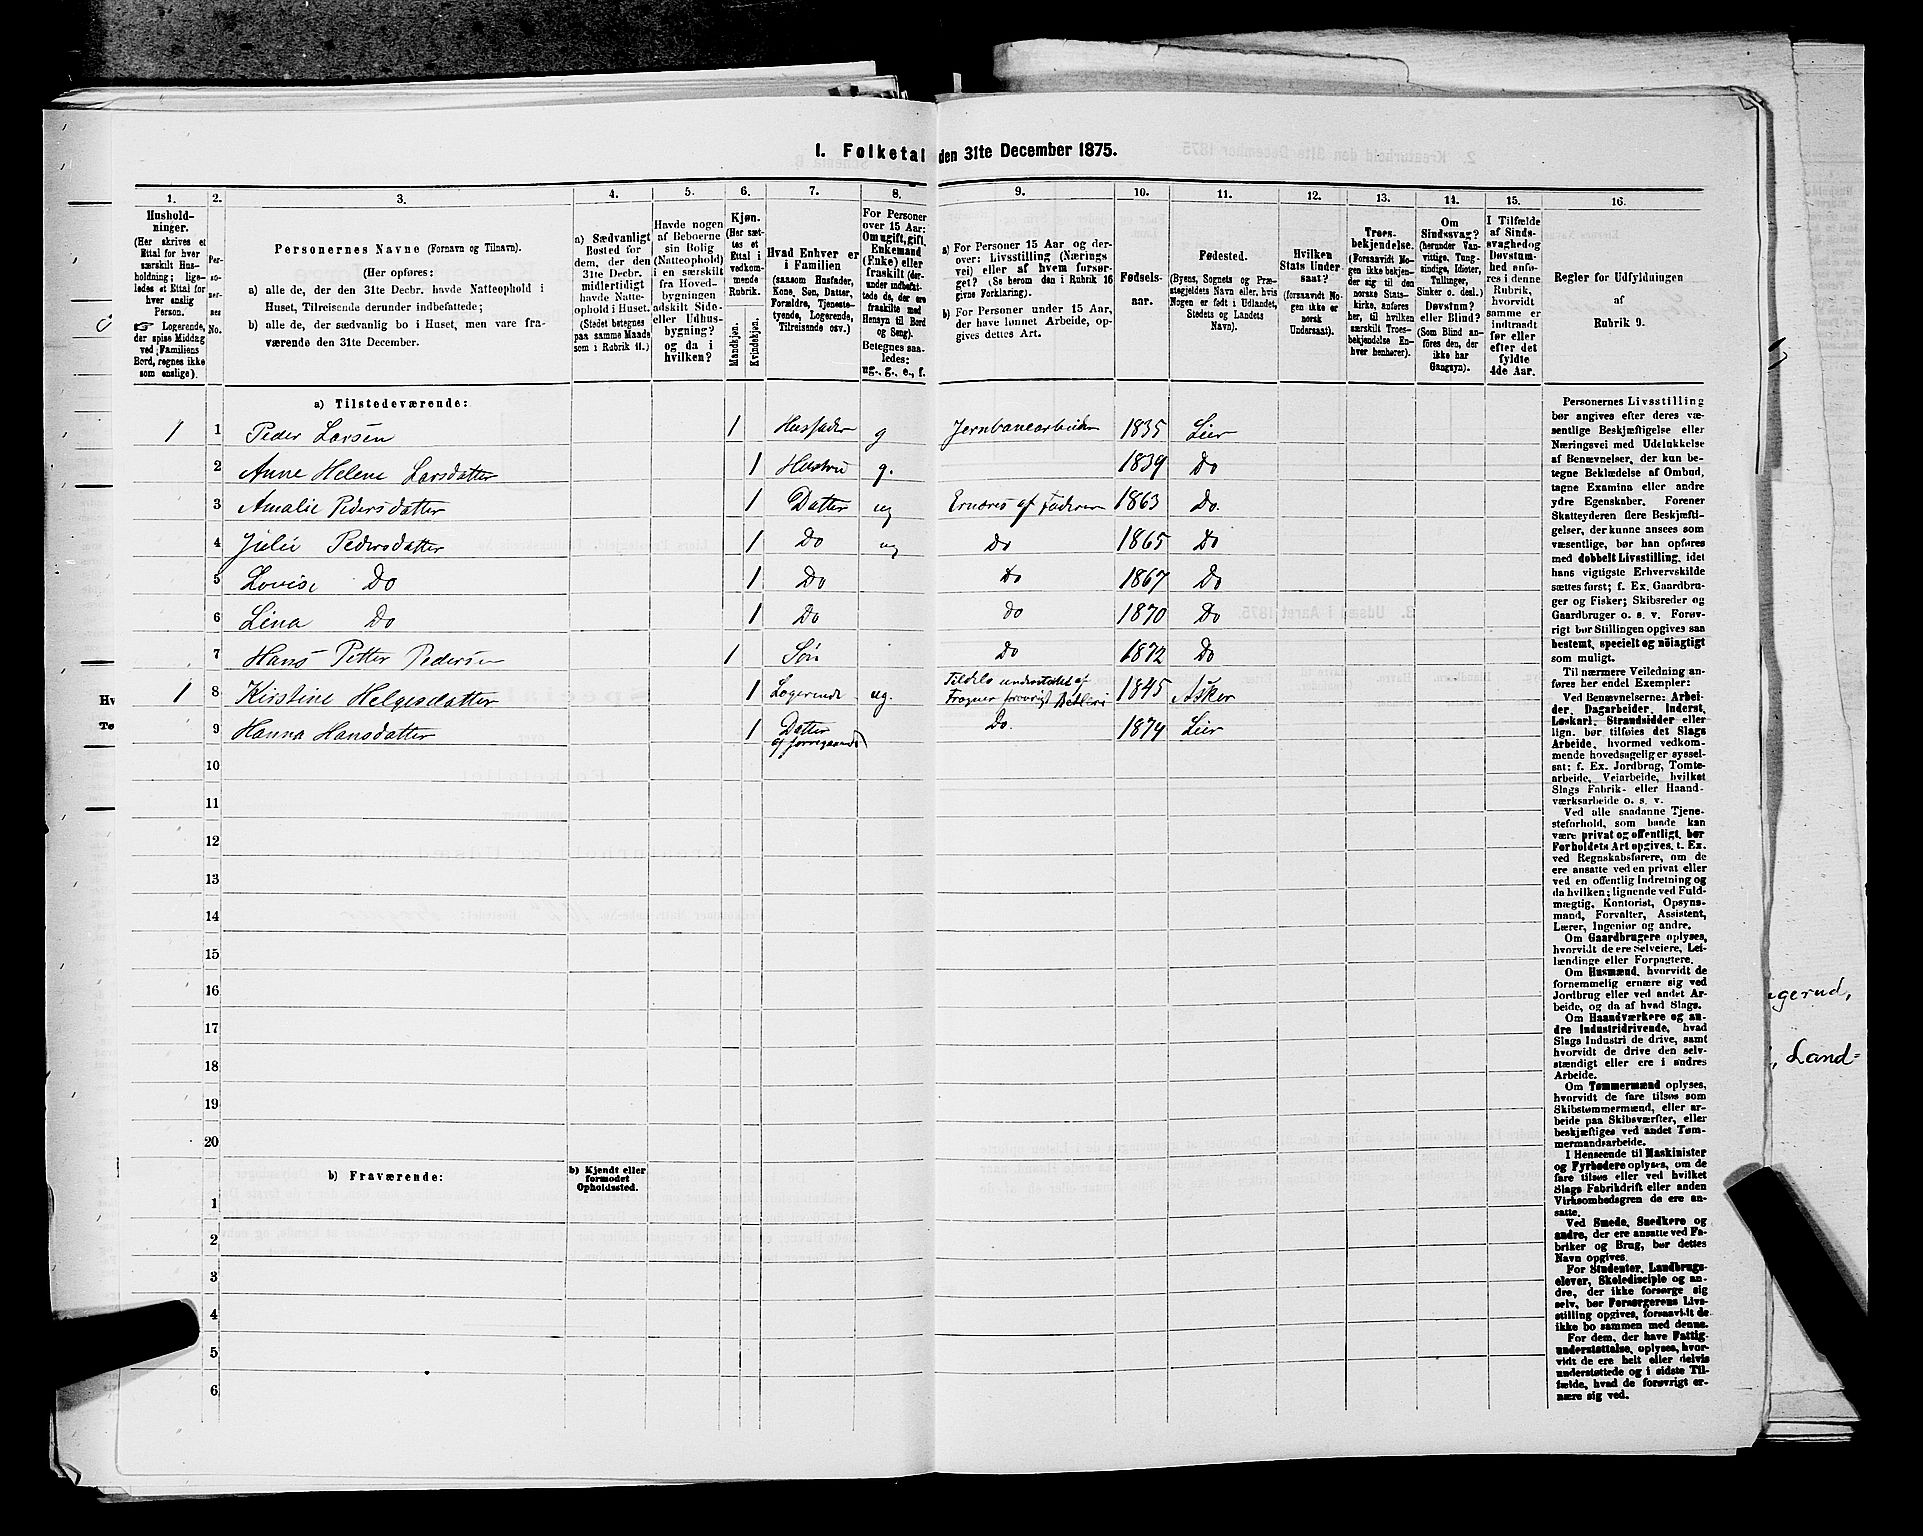 I. Folketal den 31te December 1875.
1. 2. 3. 4. 5. 6. 7. 8. 9. 10. 11. 12. 13. 14. 15. 16.
Husholdninger.
(Her skrives et Ettal for hver særskilt Husholdning; ligeledes et Ettal for hver enslig Person.
☞ Logerende, der spise Middag ved Familiens Bord, regnes ikke som enslige).
Personernes No.
Personernes Navne (Fornavn og Tilnavn).
(Her opføres:
a) alle de, der den 31te Decbr. havde Natteophold i Huset, Tilreisende derunder indbefattede;
b) alle de, der sædvanlig bo i Huset, men vare fraværende den 31te December.
a) Sædvanligt Bosted for dem, der den 31te Decbr. midlertidigt havde Natteophold i Huset. (Stedet betegnes paa samme Maade som i Rubrik 11.)
Havde nogen af Beboerne sin Bolig (Natteophold) i en særskilt fra Hovedbygningen adskilt Side- eller Udhusbygning? og da i hvilken?
Kjøn. (Her sættes et Ettal i vedkommende Rubrik.
Mandkjøn. Kvindekjøn.
Hvad Enhver er i Familien (saasom Husfader, Kone, Søn, Datter, Forældre, Tjenestetyende, Logerende, Tilreisende osv.)
For Personer over 15 Aar: Om ugift, gift, Enkemand (Enke) eller fraskilt (derunder indbefattede de, der ere fraskilte med Hensyn til Bord og Seng). Betegnes saaledes: ug., g., e., f.
a) For Personer 15 Aar og derover: Livsstilling (Næringsvei) eller af hvem forsørget? (Se herom den i Rubrik 16 givne Forklaring).
b) For Personer under 15 Aar, der have lønnet Arbeide, opgives dettes Art.
Fødselsaar.
Fødested. (Byens, Sognets og Præstegjeldets Navn eller, hvis Nogen er født i Udlandet, Stedets og Landets Navn).
Hvilken Stats Undersaat? (forsaavidt Nogen ikke er norsk Undersaat).
Troesbekjendelse. (Forsaavidt Nogen ikke bekjender sig til den norske Statskirke, anføres her, til hvilken særskilt Troesbekjendelse Enhver henhører).
Om Sindssvag? (herunder Vanvittige, Tungsindige, Idioter, Tullinger, Sinker o. desl.) Døvstum? eller Blind? (Som Blind anføres den, der ikke har Gangsyn).
I Tilfælde af Sindssvaghed og Døvstumhed anføres i denne Rubrik, hvorvidt samme er indtraadt før eller efter det fyldte 4de Aar.
Regler for Udfyldningen af Rubrik 9.
a) Tilstedeværende:
1 1 Peder Larsen 1 Husfader g Jernbanearbeider 1835 Lier
2 Anne Helene Larsdatter 1 Hustru g. 1839 Do
3 Amalie Pedersdatter 1 Datter ug Ernæres af Faderen 1863 Do.
4 Julie Pedersdatter 1 Do ug Do 1865 Do
5 Lovise Do 1 Do Do 1867 Do
6 Lina Do 1 Do Do 1870 Do
7 Hans Petter Pedersen 1 Søn Do 1872 Do
1 8 Kirstine Helgesdatter 1 Logerende ug. Fildels understøttet af Fragner forøvrigt 1845 Asker
9 Hanna Hansdatter 1 Datter af foregaaende Do. 1874 Lier
10
11
12
13
14
15
16
17
18
19
20
b) Fraværende:
b) Kjendt eller formodet Opholdssted.
1
2
3
4
5
6
Personernes Livsstilling
bør angives efter deres væ-
sentlige Beskjæftigelse eller
Næringsvei med Udelukkelse
af Benævnelser, der kun be-
tegne Beklædelse af Ombud,
tagne Examina eller andre
ydre Egenskaber. Forener
Skatteyderen flere Beskjæfti-
gelser, der kunne ansees som
væsentlige, bør han opføres
med dobbelt Livsstilling, idet
hans vigtigste Erhvervskilde
sættes først; f. Ex. Gaardbru-
ger og Fisker; Skibsreder og
Gaardbruger o. s. v. Forøv-
rigt bør Stillingen opgives saa
bestemt, specielt og nøiagtigt
som muligt.
Til nærmere Veiledning an-
føres her endel Exempler:
Ved Benævnelserne: Arbei-
der, Dagarbeider, Inderst,
Løskarl, Strandsidder eller
lign. bør tilføies det Slags
Arbeide, hvormed vedkom-
mende hovedsagelig er syssel-
sat: f. Ex. Jordbrug, Tomte-
arbeide, Veiarbeide, hvilket
Slags Fabrik- eller Haand-
værksarbeide o. s. v.
Ved alle saadanne Tjene-
steforhold, som baade kan
være privat og offentligt, bør
Forholdets Art opgives, f. Ex.
ved Regnskabsførere, om de
ere ansatte ved en privat eller
ved en offentlig Indretning og
da hvilken; lignende ved Fuld-
mægtig, Kontorist, Opsyns-
mand, Forvalter, Assistent,
Lærer, Ingeniør og andre.
Om Gaardbrugere oplyses,
hvorvidt de ere Selveiere, Lei-
lændinge eller Forpagtere.
Om Husmænd, hvorvidt de
fornemmelig ernære sig ved
Jordbrug eller ved andet Ar-
beide, og da af hvad Slags.
Om Haandværkere og an-
dre Industridrivende, hvad
Slags Industri de drive, samt
hvorvidt de drive den selv-
stændigt eller ere i andres
Arbeide.
Om Tømmermænd oplyses,
hvorvidt de fare tilsøs som
Skibstømmermænd, eller ar-
beide paa Skibsværfter, eller
beskjæftiges ved andet Tøm-
mermandsarbeide.
I Henseende til Maskinister
og Fyrbødere oplyses, om de
fare tilsøs eller ved hvilket
Slags Fabrikdrift eller anden
Virksomhedsgren de ere an-
satte.
Ved Smede, Snedkere og
andre, der ere ansatte ved Fa-
briker og Brug, bør dettes
Navn opgives.
For Studenter, Landbrugs-
elever, Skoledisciple og an-
dre, der ikke forsørge sig
selv, bør Forsørgerens Livs-
stilling opgives, forsaavidt de
ikke bo sammen med denne.
For dem, der have Fattig-
understøttelse, oplyses, hvor-
vidt de ere helt eller delvis
understøttede og i sidste Til-
fælde, hvad de forøvrigt er-
nære sig ved.
gerud,
, Land=